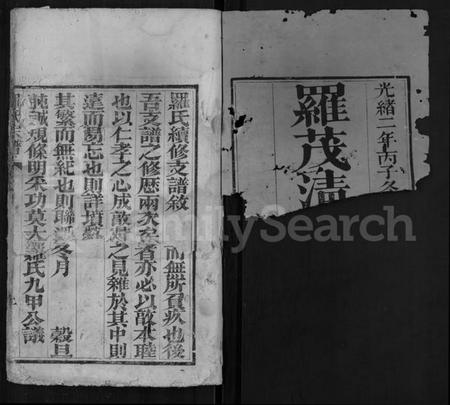 光緒二年丙子冬
羅茂清
羅氏續修支譜敘
吾支譜之修歷兩次
而無所負疚也後
省亦必以敬本睦
也以仁孝之心成敬
之見雜於其中則
遠而易忘也則詳墳
其繁而無紀也則聯
冬月 穀旦
誠規條明采功莫大
羅氏九甲公議
FamilySearch